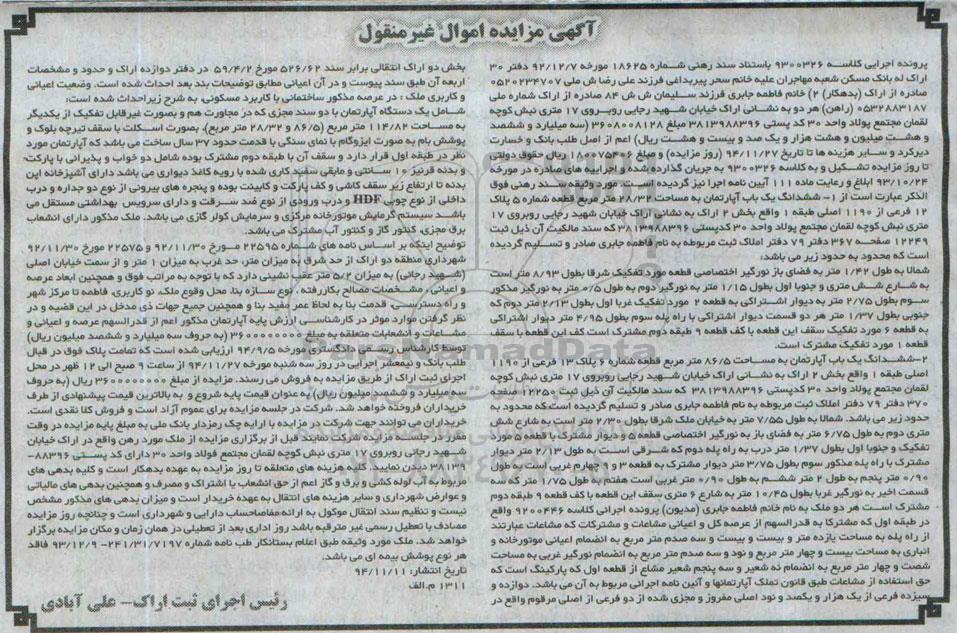 آگهی مزایده اموال غیرمنقول
پرونده اجرایی کلاسه ۹۳۰۰۳۲۶ باستناد سند رهنی شماره ۱۸۶۲۵ مورخه ۹۲/۱۲/۷ دفتر ۳۰
اراک له بانک مسکن شعبه مهاجران علیه خانم سحر پیربداغی فرزند علی رضا ش ملی ۰۵۲۰۲۳۴۷۰۷
صادره از اراک (بدهکار) ۲) خانم فاطمه جابری فرزند سلیمان ش ش ۸۴ صادره از اراک شماره ملی
۰۵۳۲۸۸۳۱۸۷ (راهن) هر دو به نشانی اراک خیابان شهید رجایی روبروی ۱۷ متری نبش کوچه
لقمان مجتمع پولاد واحد ۳۰ کد پستی ۳۸۱۳۹۸۸۳۹۶ مبلغ ۳۶۰۸۰۰۸۱۲۸ (سه میلیارد و ششصد
و هشت میلیون و هشت هزار و یک صد و بیست و هشت ریال) اعم از اصل طلب بانک و خسارت
دیرکرد و سایر هزینه ها تا تاریخ ۹۴/۱۱/۲۷ (روز مزایده) و مبلغ ریال حقوق دولتی
تا روز مزایده تشکیل و به کلاسه ۹۳۰۰۳۲۶ به جریان گذارده شده و اجراییه های صادره در مورخه
۹۳/۱۰/۲۴ ابلاغ و رعایت ماده ۱۱۱ آیین نامه اجرا نیز گردیده است. مورد وثیقه سند رهنی فوق
الذکر عبارت است از ۱- ششدانگ یک باب آپارتمان به مساحت ۲۸/۳۲ متر مربع قطعه شماره ۵ پلاک
۱۲ فرعی از ۱۱۹۰ اصلی طبقه ۱ واقع بخش ۲ اراک به نشانی اراک خیابان شهید رجایی روبروی ۱۷
متری نبش کوچه لقمان مجتمع پولاد واحد ۳۰ کدپستی ۳۸۱۳۹۸۸۳۹۶ که سند مالکیت آن ذیل ثبت
۱۲۲۴۹ صفحه ۳۶۷ دفتر ۷۹ دفتر املاک ثبت مربوطه به نام فاطمه جابری صادر و تسلیم گردیده
است که محدود به حدود زیر می باشد:
شمالا به طول ۱/۴۲ متر به فضای باز نورگیر اختصاصی قطعه مورد تفکیک شرقا بطول ۸/۹۳ متر است
به شارع شش متری و جنوبا اول بطول ۱/۱۵ متر به نورگیر دوم به طول ۰/۵ متر به نورگیر مذکور
سوم بطول ۲/۷۵ متر به دیوار اشتراکی به قطعه ۲ مورد تفکیک غربا اول بطول ۲/۱۳ متر دوم که
جنوبی بطول ۱/۳۷ متر هر دو قسمت دیوار اشتراکی با راه پله سوم بطول ۴/۹۵ متر دیوار اشتراکی
به قطعه ۶ مورد تفکیک سقف این قطعه با کف قطعه ۹ طبقه دوم مشترک است کف این قطعه با سقف
قطعه ۱ مورد تفکیک مشترک است.
۲-ششدانگ یک باب آپارتمان به مساحت ۸۶/۵ متر مربع قطعه شماره ۶ پلاک ۱۳ فرعی از ۱۱۹۰
اصلی طبقه ۱ واقع بخش ۲ اراک به نشانی اراک خیابان شهید رجایی روبروی ۱۷ متری نبش کوچه
لقمان مجتمع پولاد واحد ۳۰ کدپستی ۳۸۱۳۹۸۸۳۹۶ که سند مالکیت آن ذیل ثبت ۱۲۲۵۰ صفحه
۳۷۰ دفتر ۷۹ دفتر املاک ثبت مربوطه به نام فاطمه جابری صادر و تسلیم گردیده است.که محدود به
حدود زیر می باشد. شمالا به طول ۷/۵۵ متر به خیابان ملک شرقا بطول ۲/۳۰ متر است به شارع شش
متری دوم به طول ۶/۷۵ متر به فضای باز به نورگیر اختصاصی قطعه ۵ و دیوار مشترک با قطعه ۵ مورد
تفکیک و جنوبا اول بطول ۱/۳۷ متر درب به راه پله دوم که شرقی است به طول ۲/۱۳ متر دیوار
مشترک با راه پله مذکور سوم بطول ۳/۷۵ متر دیوار مشترک به قطعه ۳ و ۹ چهارم غربی است به طول
۰/۹۰ متر پنجم به طول ۲ متر ششم به طول ۰/۹۰ متر غربی است هفتم به طول ۱/۷۵ متر که سه
قسمت اخیر به نورگیر غربا بطول ۱۰/۴۵ متر به شارع ۶ متری سقف این قطعه با کف قطعه ۹ طبقه دوم
مشترک است هر دو ملک به نام خانم فاطمه جابری (مدیون) پرونده اجرائی کلاسه ۹۲۰۰۴۴۶ واقع
در طبقه اول که مشترکا به قدرالسهم از عرصه کل و اعیانی مشاعات و مشترکات که مشاعات عبارتند
از راه پله به مساحت یازده متر و بیست و بیست و سه صدم متر مربع به انضمام اعیانی موتورخانه و
انباری به مساحت بیست و چهار متر مربع و نود و سه صدم متر مربع به انضمام نورگیر غربی به مساحت
شصت و چهار متر مربع به انضمام نه شعیر و سه پنجم شعیر مشاع از قطعه اول که پارکینگ است که
حق استفاده از مشاعات طبق قانون تملک آپارتمانها و آئین نامه اجرائی مربوط به آن می باشد. دوازده و
سیزده فرعی از یک هزار و یکصد و نود اصلی مفروز و مجزی شده از دو فرعی از اصلی مرقوم واقع در
بخش دو اراک انتقالی برابر سند ۵۲۶/۶۲ مورخ ۵۹/۴/۲ در دفتر دوازده اراک و حدود و مشخصات
اربعه آن طبق سند پیوست و در آن اعیانی مطابق توضیحات بند بعد احداث شده است. وضعیت اعیانی
و کاربری ملک : در عرصه مذکور ساختمانی با کاربرد مسکونی، به شرح زیراحداث شده است:
شامل یک دستگاه آپارتمان با دو سند مجزی که در مجاورت هم و بصورت غیرقابل تفکیک از یکدیگر
به مساحت ۱۱۴/۸۲ متر مربع (۸۶/۵ و ۲۸/۳۲ متر مربع)، بصورت اسکلت با سقف تیرچه بلوک و
پوشش بام به صورت ایزوگام با نمای سنگی با قدمت حدود ۳۷ سال ساخت می باشد که آپارتمان مورد
نظر در طبقه اول قرار دارد و سقف آن با طبقه دوم مشترک بوده شامل دو خواب و پذیرایی با پارکت
و بدنه قرنیز ۱۰ سانتی و مابقی سفید کاری شده با رویه کاغذ دیواری می باشد دارای آشپزخانه اپن
بدنه تا ارتفاع زیر سقف کاشی و کف پارکت و کابینت بوده و پنجره های بیرونی از نوع دو جداره و درب
داخلی از نوع چوبی HDF و درب ورودی از نوع ضد سرقت و دارای سرویس بهداشتی مستقل می
باشد سیستم گرمایش موتورخانه مرکزی و سرمایش کولر گازی می باشد. ملک مذکور دارای انشعاب
برق مجزی، کنتور گاز و کنتور آب مشترک می باشد.
توضیح اینکه بر اساس نامه های شماره ۲۲۵۹۵ مورخ ۹۲/۱۱/۳۰ و ۲۲۵۷۵ مورخ ۹۲/۱۱/۳۰
شهرداری منطقه دو اراک از حد شرق به میزان متر، حد غرب به میزان ۱ متر و از سمت خیابان اصلی
(شهید رجائی) به میزان ۵/۲ متر عقب نشینی دارد که با توجه به مراتب فوق و همچنین ابعاد عرصه
و اعیانی ، مشخصات مصالح بکاررفته ، نوع سازه بنا، محل وقوع ملک، نو کاربری، فاصله تا مرکز شهر
و راه دسترسی، قدمت بنا به لحاظ عمر مفید بنا و همچنین جمیع جهات ذی مدخل در این قضیه و در
نظر گرفتن موارد موثر در کارشناسی ارزش پایه آپارتمان مذکور اعم از قدرالسهم عرصه و اعیانی و
مشاعات و انشعابات متعلقه به مبلغ ۳۶۰۰۰۰۰۰۰۰ (به حروف سه میلیارد و ششصد میلیون ریال)
توسط کارشناس رسمی دادگستری مورخه ۹۴/۹/۵ ارزیابی شده است که تمامت پلاک فوق در قبال
طلب بانک و نیمعشر اجرایی در روز سه شنبه مورخه ۹۴/۱۱/۲۷ از ساعت ۹ صبح الی ۱۲ ظهر در محل
اجرای ثبت اراک از طریق مزایده به فروش می رسند. مزایده از مبلغ ۳۶۰۰۰۰۰۰۰۰ ریال (به حروف
سه میلیارد و ششصد میلیون ریال) به عنوان قیمت پایه شروع و به بالاترین قیمت پیشنهادی از طرف
خریداران فروخته خواهد شد. شرکت در جلسه مزایده برای عموم آزاد است و فروش کلا نقدی است.
خریداران می توانند جهت شرکت در مزایده با ارایه چک رمزدار بانک ملی به مبلغ پایه مزایده در وقت
مقرر در جلسه مزایده شرکت نمایند قبل از برگزاری مزایده از ملک مورد رهن واقع در اراک خیابان
شهید رجائی روبروی ۱۷ متری نبش کوچه لقمان مجتمع فولاد واحد ۳۰ دارای کد پستی ۸۸۳۹۶-
۳۸۱۳۹ دیدن نمایید. کلیه هزینه های متعلقه تا روز مزایده به عهده بدهکار است و کلیه بدهی های
مربوط به آب لوله کشی و برق و گاز اعم از حق انشعاب یا اشتراک و مصرف و همچنین بدهی های مالیاتی
و عوارض شهرداری و سایر هزینه های انتقال به عهده خریدار است و میزان بدهی های مذکور مشخص
نیست و تنظیم سند انتقال موکول به ارائه مفاصاحساب دارایی و شهرداری است و چنانچه روز مزایده
مصادف با تعطیل رسمی غیر مترقبه باشد روز اداری بعد از تعطیلی در همان زمان و مکان مزایده برگزار
خواهد شد. ملک مورد وثیقه طبق اعلام بستانکار طب نامه شماره ۲۴۱/۳۱/۷۱۹۷- ۹۳/۱۲/۹ فاقد
هر نوع پوشش بیمه ای می باشد.
تاریخ انتشار: ۹۴/۱۱/۱۱
۱۳۱۱ م.الف
رئیس اجرای ثبت اراک- علی آبادی
ParsNamadData